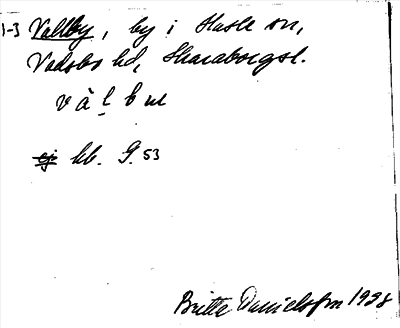 1-3 Vallby, by i Hasle sn,
Vadsbo hd, Skaraborgsl.
v à l b m
ej kb. G. 53
Britta Danielsson 1928